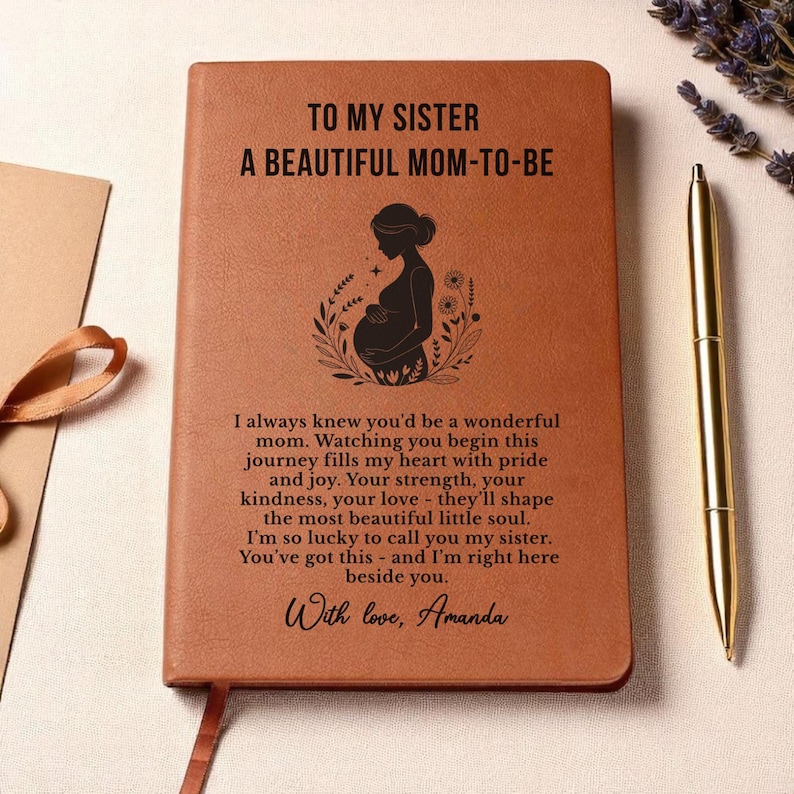 TO MY SISTER
A BEAUTIFUL MOM-TO-BE
I always knew you'd be a wonderful
mom. Watching you begin this
journey fills my heart with pride
and joy. Your strength, your
kindness, your love - they'll shape
the most beautiful little soul.
I'm so lucky to call you my sister.
You've got this - and I'm right here
beside you.
With love, Amanda